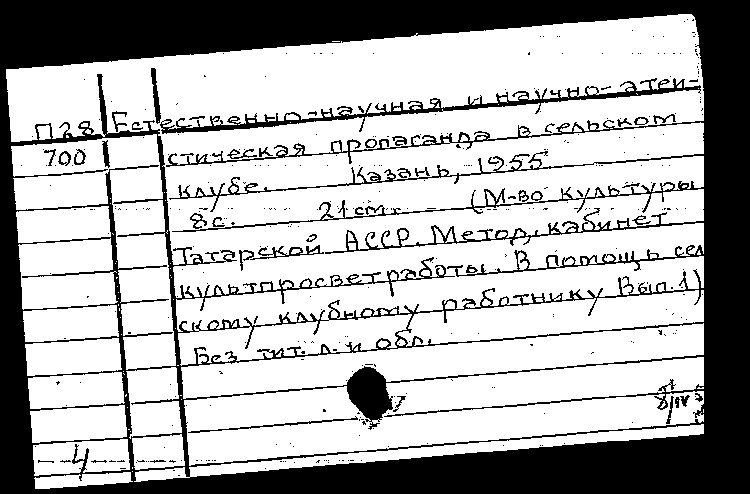 П28 Естественно-научная и научно-атеи-
700 стическая пропаганда в сельском
клубе. Казань, 1955
8с. 21см. (М-во культуры
Татарской АССР. Метод. кабинет
культпросветработы. В помощь сел
скому клубному работнику Вып. 1)
Без тит. л. и обл.
4